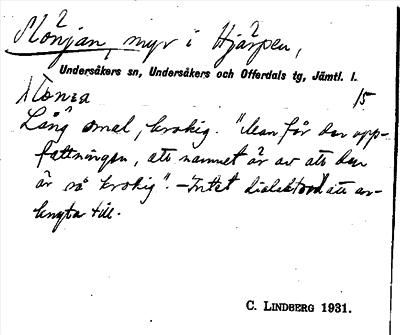 Mönjan, myr i Hjärpen,
Undersåkers sn, Undersåkers och Offerdals tg, Jämtl. l.
15
Lång smal, krokig. "Man får den upp-
fattningen, att namnet är av att den
är så krokig". – Intet dialektord att an-
knyta till.
C. LINDBERG 1931.